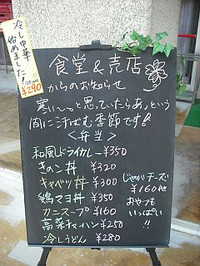 冷し中華
始めました!
¥290
食堂&売店
からのお知らせ
寒い〜っと思っていたらあっという
間に汗ばむ季節です!
<弁当>
和風ドライカレー ¥350
きのこ丼 ¥320
キャベツ丼 ¥300
鶏マヨ丼 ¥350
カニスープ ¥160
高菜チャーハン ¥250
冷しうどん ¥280
じゃがチーズ
¥160他
おやつも
いっぱい
!!